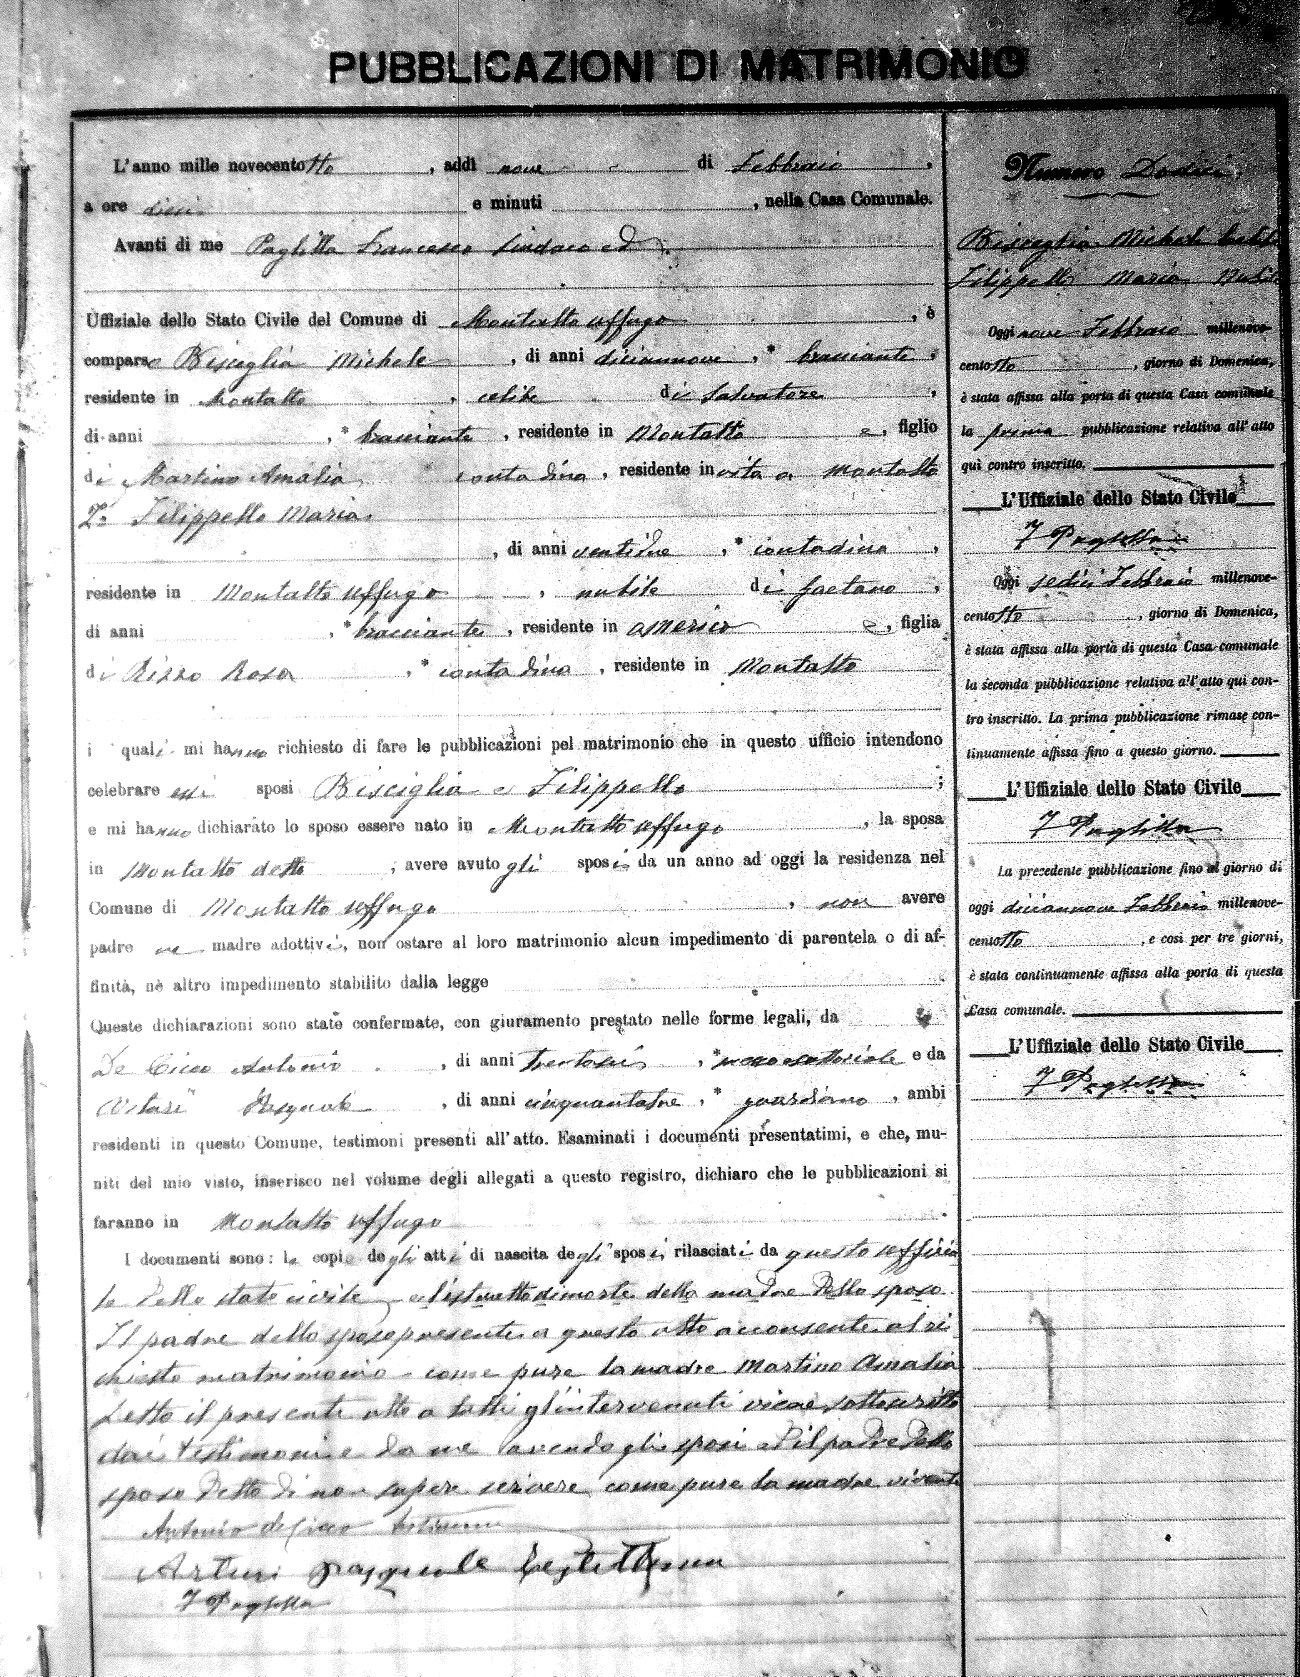 PUBBLICAZIONI DI MATRIMONIO
L'anno mille novecentotto, addì nove di Febbraio,
a ore dieci e minuti , nella Casa Comunale.
Avanti di me Paglilla Francesco Sindaco ed
Uffiziale dello Stato Civile del Comune di Montalto Uffugo, è
comparso Bisciglia Michele, di anni diciannove, * bracciante,
residente in Montalto, celibe di Salvatore,
di anni , * bracciante, residente in Montalto e, figlio
di Martino Amalia contadina, residente in vita a Montalto
2° Filippello Maria
, di anni ventidue, * contadina,
residente in Montalto Uffugo, nubile di Gaetano,
di anni , * bracciante, residente in America e, figlia
di Rizzo Rosa, * contadina, residente in Montalto
i quali mi hanno richiesto di fare le pubblicazioni pel matrimonio che in questo ufficio intendono
celebrare essi sposi Bisciglia e Filippello ;
e mi hanno dichiarato lo sposo essere nato in Montalto Uffugo, la sposa
in Montalto detto ; avere avuto gli sposi da un anno ad oggi la residenza nel
Comune di Montalto Uffugo, non avere
padre ne madre adottivi, non ostare al loro matrimonio alcun impedimento di parentela o di af-
finità, nè altro impedimento stabilito dalla legge
Queste dichiarazioni sono state confermate, con giuramento prestato nelle forme legali, da
De Cicco Antonio, di anni trentasei, * e da
Pasquale, di anni cinquantatre, * guardiano, ambi
residenti in questo Comune, testimoni presenti all'atto. Esaminati i documenti presentatimi, e che, mu-
niti del mio visto, inserisco nel volume degli allegati a questo registro, dichiaro che le pubblicazioni si
faranno in Montalto Uffugo
I documenti sono: le copie degli atti di nascita degli sposi, rilasciati da questo Uffizia
le dello stato civile e l'estratto di morte della madre dello sposo.
Il padre dello sposo presente a questo atto acconsente al ri
chiesto matrimonio come pure la madre Martino Amalia
Letto il presente atto a tutti gl'intervenuti viene sottoscritto
dai testimoni e da me avendo gli sposi ed il padre dello
sposo detto di non sapere scrivere come pure la madre vivente
Antonio de Cicco testimone
Arturi Pasquale Testimone
F Paglilla
Numero Dodici
Bisceglia Michele Celibe
Filippello Maria Nubile
Oggi nove Febbraio millenove-
centotto, giorno di Domenica,
è stata affissa alla porta di questa Casa comunale
la prima pubblicazione relativa all'atto
qui contro inscritto.
L'Uffiziale dello Stato Civile
F Paglilla
Oggi sedici Febbraio millenove-
centotto, giorno di Domenica,
è stata affissa alla porta di questa Casa comunale
la seconda pubblicazione relativa all'atto qui con-
tro inscritto. La prima pubblicazione rimase con-
tinuamente affissa fino a questo giorno.
L'Uffiziale dello Stato Civile
F Paglilla
La precedente pubblicazione fino al giorno di
oggi diciannove Febbraio millenove-
centotto, e così per tre giorni,
è stata continuamente affissa alla porta di questa
Casa comunale.
L'Uffiziale dello Stato Civile
F Paglilla